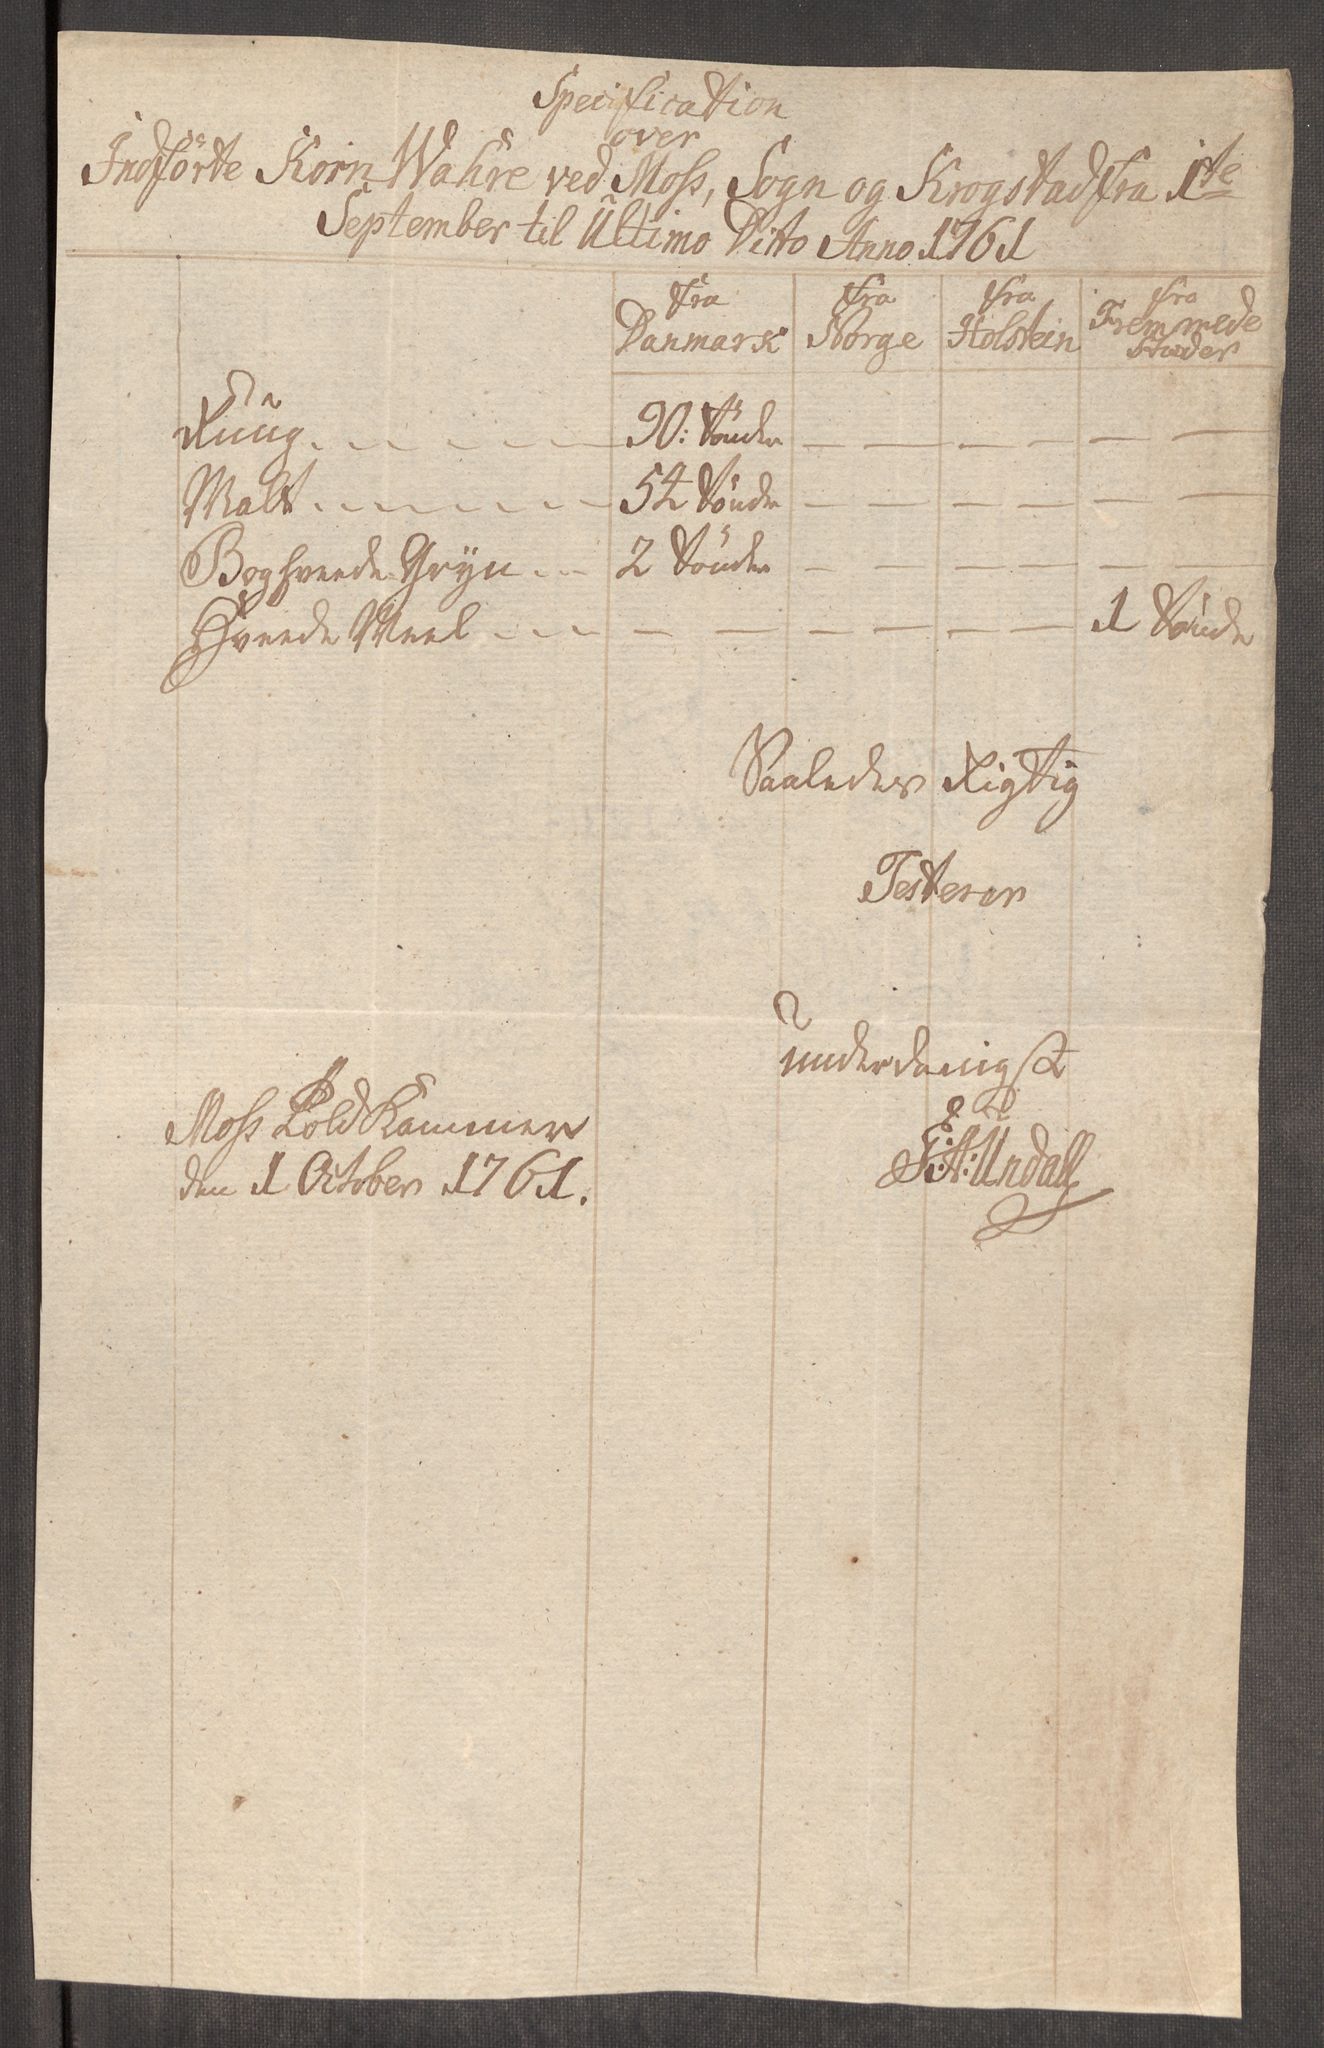 Specification
over
Indförte Korn Wahre ved Moss, Sogn og Krogstad fra 1te
September til Ultimo Dito Anno 1761
fra Danmark fra Norge fra Holstein fra Fremmede Stæder
Ruug 90: Tönder — — — — — —
Malt 54 Tönder — — — — — —
Boghveede Gryn 2 Tönder — — — — — —
Hveede Meel — — — — — — 1 Tönde
Saaledes Rigtig
Testerer
underdanigst
Moss Told Kammer
den 1 October 1761.
Undall